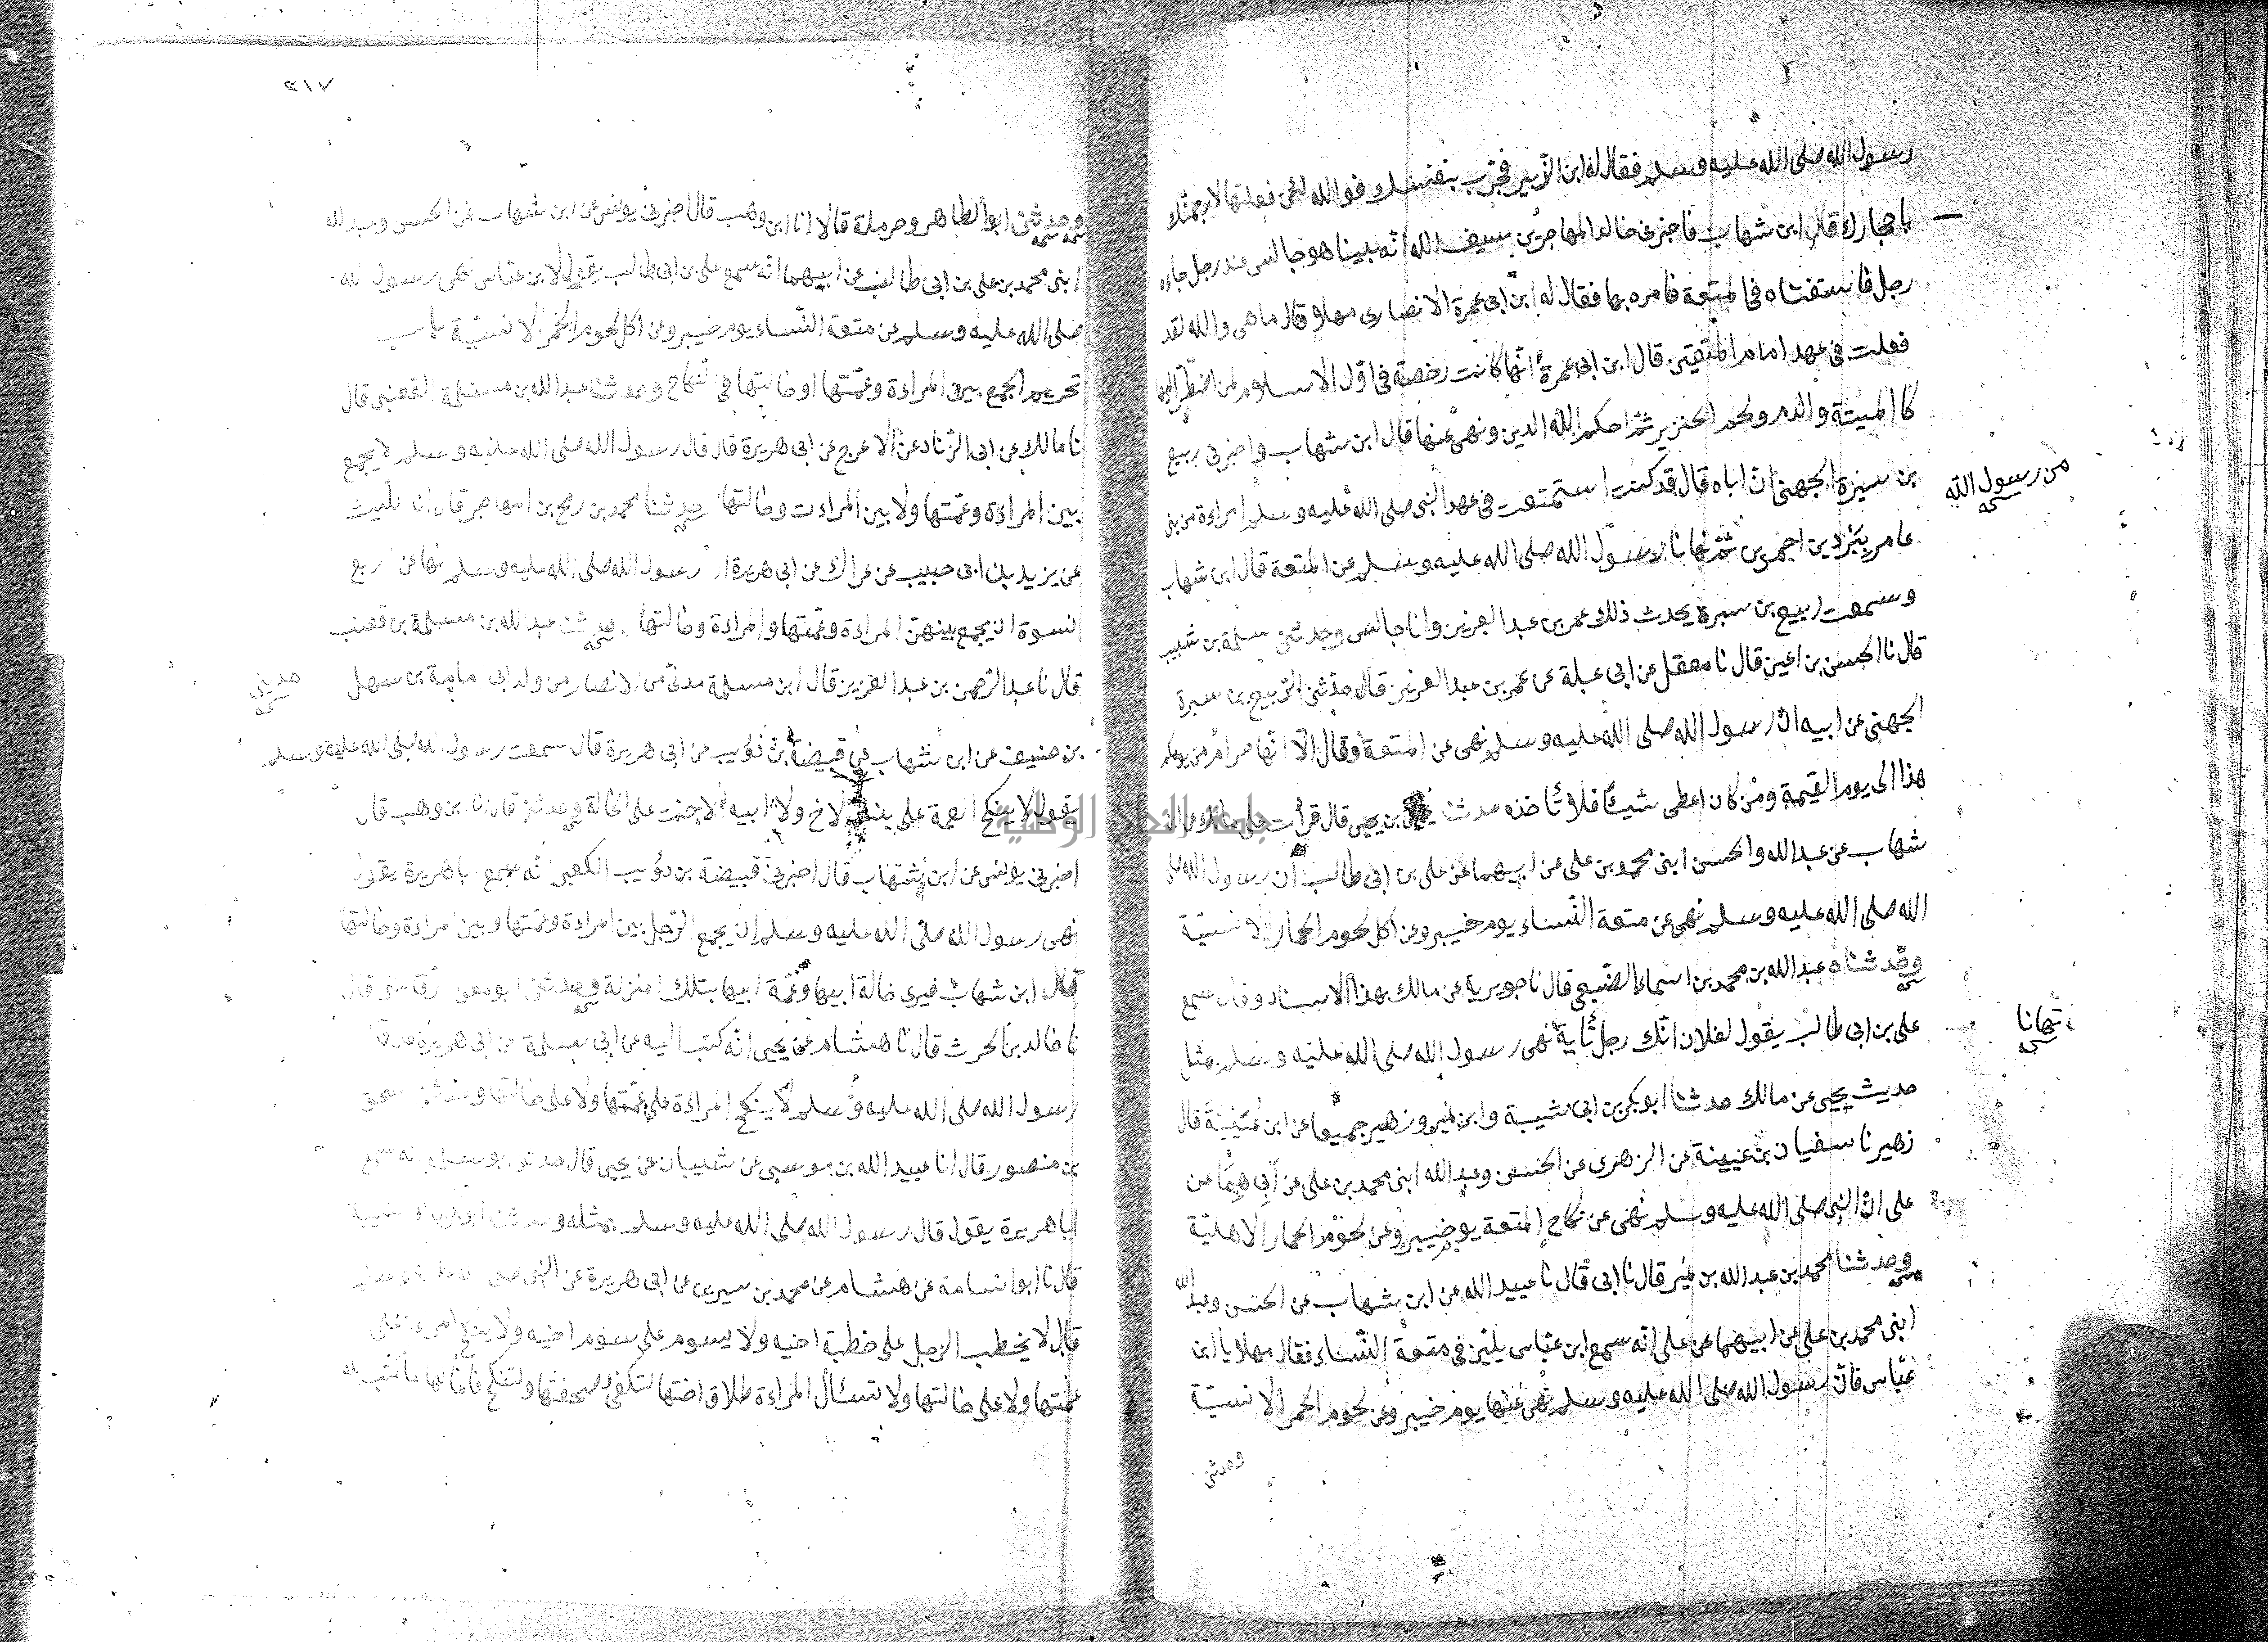 رسول الله صلى الله عليه وسلم فقال له ابن الزبير فجرب بنفسك فوالله لئن فعلتها لارجمنك
باحجارك قال ابن شهاب فاخبرني خالد المهاجر بن سيف الله انه بينا هو جالس عند رجل جاءه
رجل فاستفتاه في المتعة فامره بها فقال له ابن ابي عمرة الانصاري مهلا قال ما هي والله لقد
فعلت في عهد امام المتقين قال ابن ابي عمرة انها كانت رخصة في اول الاسلام لمن اضطر اليها
كالميتة والدم ولحم الخنزير ثم احكم الله الدين ونهى عنها قال ابن شهاب واخبرني ربيع
بن سبرة الجهني ان اباه قال قد كنت استمتعت في عهد النبي صلى الله عليه وسلم امراءة من بني
من رسول الله
عامر ببردين احمرين ثم نهانا رسول الله صلى الله عليه وسلم عن المتعة قال ابن شهاب
وسمعت ربيع بن سبرة يحدث ذلك عمر بن عبد العزيز وانا جالس وحدثني سلمة بن شبيب
قال نا الحسن بن اعين قال نا معقل عن ابي عبلة عن عمر بن عبد العزيز قال حدثني الربيع بن سبرة
الجهني عن ابيه ان رسول الله صلى الله عليه وسلم نهى عن المتعة وقال الا انها حرام من يومكم
هذا الى يوم القيمة ومن كان اعطى شيئا فلا تأخذه حدثنا يحيى بن يحيى قال قرأت على مالك عن ابن
شهاب عن عبد الله والحسن ابني محمد بن علي عن ابيهما عن علي بن ابي طالب ان رسول الله صلى
الله صلى الله عليه وسلم نهى عن متعة النساء يوم خيبر وعن اكل لحوم الحمار الانسية
وحدثناه عبد الله بن محمد بن اسماء الضبعي قال نا جويرية عن مالك بهذا الاسناد وقال سمع
علي بن ابي طالب يقول لفلان انك رجل تايه نهى رسول الله صلى الله عليه وسلم بمثل
نهانا
حديث يحيى عن مالك حدثنا ابو بكر بن ابي شيبة وابن نمير وزهير جميعا عن ابن عيينة قال
زهير نا سفيان بن عيينة عن الزهري عن الحسن وعبد الله ابني محمد بن علي عن ابيهما عن
علي ان النبي صلى الله عليه وسلم نهى عن نكاح المتعة يوم خيبر وعن لحوم الحمار الاهلية
وحدثنا محمد بن عبد الله بن نمير قال نا ابي قال نا عبيد الله عن ابن شهاب عن الحسن وعبد الله
ابني محمد بن علي عن ابيهما عن علي انه سمع ابن عباس يلين في متعة النساء فقال مهلا يا ابن
عباس فان رسول الله صلى الله عليه وسلم نهى عنها يوم خيبر وعن لحوم الحمر الانسية
وحدثني
٢١٧
وحدثني ابو الطاهر وحرملة قالا انا ابن وهب قال اخبرني يونس عن ابن شهاب عن الحسن وعبد الله
ابني محمد بن علي بن ابي طالب عن ابيهما انه سمع علي بن ابي طالب يقول لابن عباس نهى رسول الله
صلى الله عليه وسلم عن متعة النساء يوم خيبر وعن اكل لحوم الحمر الانسية باب
تحريم الجمع بين المراءة وعمتها او خالتها في النكاح وحدثنا عبد الله بن مسلمة القعنبي قال
نا مالك عن ابي الزناد عن الاعرج عن ابي هريرة قال قال رسول الله صلى الله عليه وسلم لا يجمع
بين المراءة وعمتها ولا بين المراءت وخالتها حدثنا محمد بن رمح بن المهاجر قال انا الليث
عن يزيد بن ابي حبيب عن عراك عن ابي هريرة ان رسول الله صلى الله عليه وسلم نها عن اربع
نسوة ان يجمع بينهن المراءة وعمتها والمراءة وخالتها وحدثنا عبد الله بن مسلمة بن قعنب
قال نا عبد الرحمن بن عبد العزيز قال ابن مسلمة مدني من الانصار من ولد ابي مامة بن سهل
مديني
بن حنيف عن ابن شهاب عن قبيصة بن ذؤيب عن ابي هريرة قال سمعت رسول الله صلى الله عليه وسلم
يقول لا ينكح العمة على بنت الاخ ولا ابنة الاخت على الخالة وحدثني قال انا ابن وهب قال
اخبرني يونس عن ابن شهاب قال اخبرني قبيصة بن ذؤيب الكعبي انه سمع باهريرة يقول
نهى رسول الله صلى الله عليه وسلم ان يجمع الرجل بين امراءة وعمتها وبين امراءة وخالتها
قال ابن شهاب فيرى خالة ابيها وعمة ابيها بتلك المنزلة وحدثني ابو معن الرقاشي قال
نا خالد بن الحرث قال نا هشام عن يحيى انه كتب اليه عن ابي سلمة عن ابي هريرة قال قال
رسول الله صلى الله عليه وسلم لا ينكح المراءة على عمتها ولا على خالتها وحدثني اسحق
بن منصور قال انا عبيد الله بن موسى عن شيبان عن يحيى قال حدثني ابو سلمة انه سمع
اباهريرة يقول قال رسول الله صلى الله عليه وسلم بمثله وحدثنا ابو بكر بن ابي شيبة
قال نا ابو اسامة عن هشام عن محمد بن سيرين عن ابي هريرة عن النبي صلى الله عليه وسلم
قال لا يخطب الرجل على خطبة اخيه ولا يسوم على سوم اخيه ولا ينكح امراءة على
عمتها ولا على خالتها ولا تسئال المراءة طلاق اختها لتكفئ صحفتها ولتنكح فانما لها ما كتب الله
جامعة النجاح الوطنية